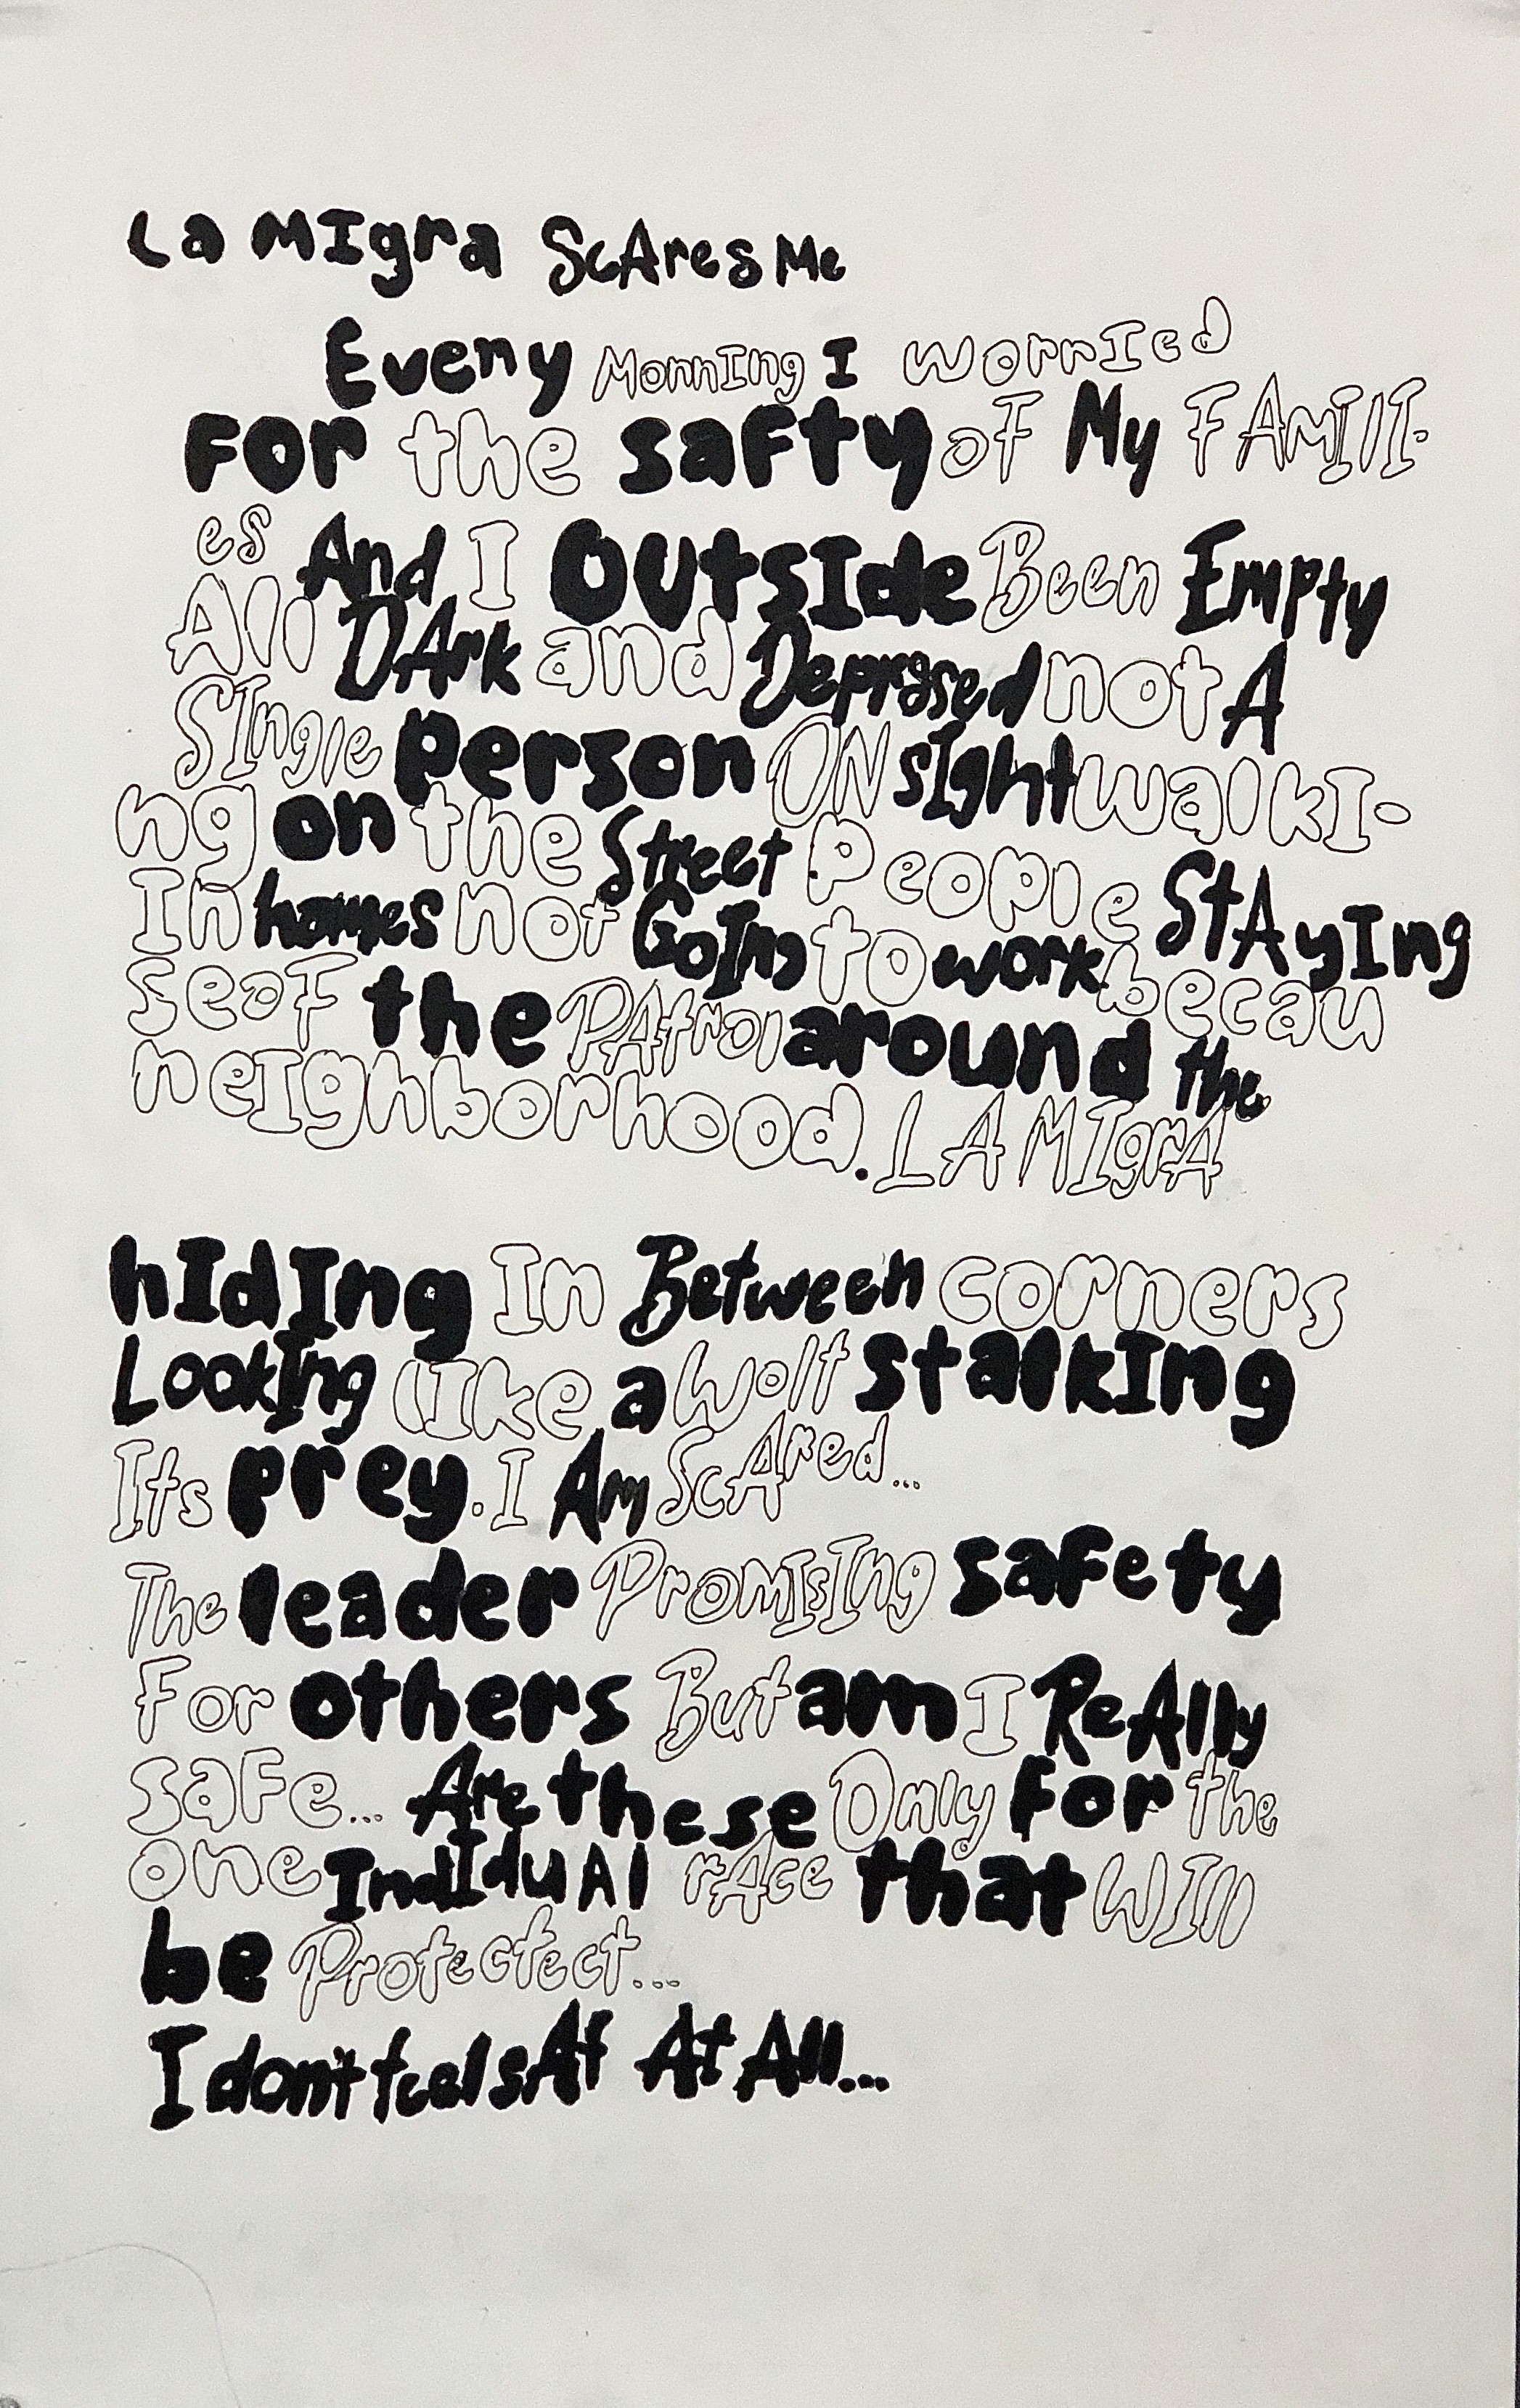 La MIgra ScAres Me
Eveny MonnIng I worrIed
For the saFty oF My FAmIlI-
es And I outsIde Been Empty
All DArk and Deprssed not A
SIngle person ON sIght walkI-
ng on the Street People StAyIng
In homes not GoIng to work becau
seoF the PAtrol around the
neIghborhood. LA MIgrA
hIdIng In Between corners
LookIng lIke a Wolf stalkIng
Its prey. I Am ScAred...
The leader PromIsIng saFety
For others But am I ReAlly
saFe... Are these Only For the
one IndIduAl rAce that WIll
be Protectect...
I don't feel sAf At All...